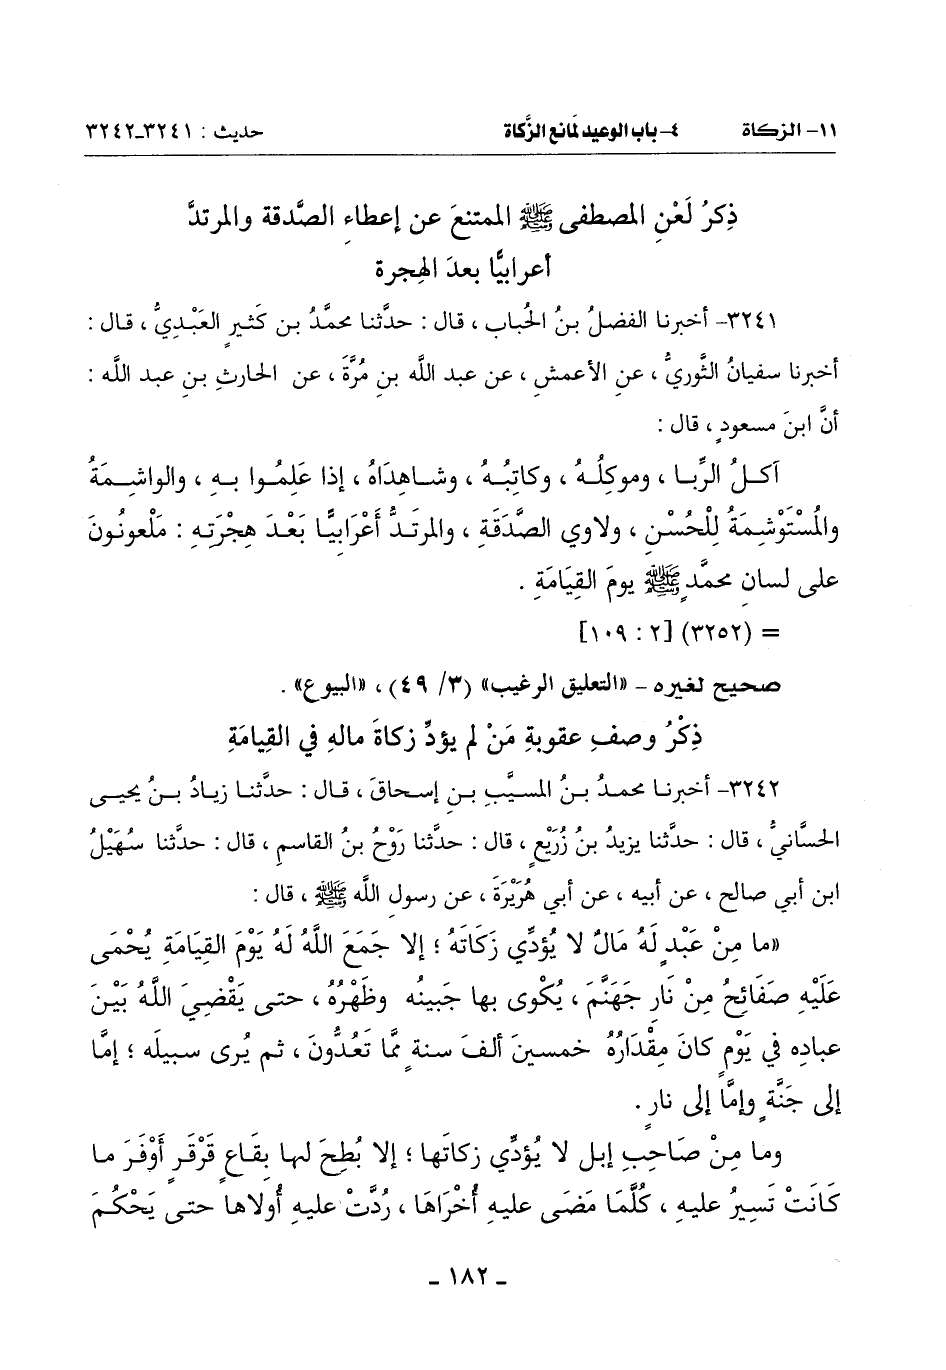 ١١- الزكاة ٤- باب الوعيد لمانع الزَّكاة حديث : ٣٢٤١-٣٢٤٢
ذِكرُ لَعْنِ المصطفى ﷺ الممتنعَ عن إعطاءِ الصَّدقة والمرتدَّ
أعرابيًّا بعدَ الهِجرة
٣٢٤١- أخبرنا الفضلُ بنُ الحُباب ، قال : حدَّثنا محمَّدُ بن كَثيرٍ العَبْديُّ ، قال :
أخبرنا سفيانُ الثَّوريُّ ، عنِ الأعمشِ ، عن عبد اللَّه بنِ مُرَّةَ ، عن الحارثِ بنِ عبد الله :
أنَّ ابنَ مسعودٍ ، قال :
آكلُ الرِّبا ، وموكِلُهُ ، وكاتِبُهُ ، وشاهِدَاهُ ، إذا عَلِمُوا بهِ ، والواشِمَةُ
والمُسْتَوْشِمَةُ لِلْحُسْنِ ، ولاوي الصَّدَقَةِ ، والمرتدُّ أَعْرَابيًّا بَعْدَ هِجْرَتِهِ : مَلْعونُونَ
على لسانِ محمَّدٍ ﷺ يومَ القِيَامَةِ .
= (٣٢٥٢) [٢ : ١٠٩]
صحيح لغيره – «التعليق الرغيب» (٣/ ٤٩) ، «البيوع» .
ذِكْرُ وصفِ عقوبةِ مَنْ لم يؤدِّ زكاةَ مالهِ في القِيامَةِ
٣٢٤٢- أخبرنا محمدُ بنُ المسيَّبِ بنِ إسحاقَ ، قال : حدَّثنا زيادُ بنُ يحيى
الحسَّانيُّ ، قال : حدَّثنا يزيدُ بنُ زُرَيْعٍ ، قال : حدَّثنا رَوْحُ بنُ القاسمِ ، قال : حدَّثنا سُهَيْلُ
ابن أبي صالح ، عن أبيه ، عن أبي هُرَيْرَةَ ، عن رسولِ اللَّه ﷺ ، قال :
«ما مِنْ عَبْدٍ لَهُ مَالٌ لا يُؤدِّي زَكَاتَهُ ؛ إلا جَمَعَ اللَّهُ لَهُ يَوْمَ القِيَامَةِ يُحْمَى
عَلَيْهِ صَفَائِحُ مِنْ نَارِ جَهَنَّمَ ، يُكْوى بها جَبينُه وظَهْرُهُ ، حتى يَقْضِيَ اللَّهُ بَيْنَ
عبادِه في يَوْمٍ كانَ مِقْدَارُهُ خمسينَ ألفَ سنةٍ ممَّا تَعُدُّونَ ، ثم يُرى سبيلَه ؛ إمَّا
إلى جَنَّةٍ وإمَّا إلى نارٍ .
وما مِنْ صَاحِبِ إبلٍ لا يُؤدِّي زكاتَها ؛ إلا بُطِحَ لها بِقَاعٍ قَرْقَرٍ أَوْفَرَ ما
كَانَتْ تَسيرُ عليهِ ، كُلَّمَا مَضَى عليهِ أُخْرَاهَا ، رُدَّتْ عليهِ أُولاها حتى يَحْكُمَ
– ١٨٢ –